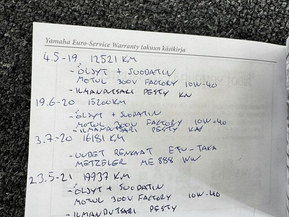 Yamaha Euro-Service Warranty takuun käsikirja
4.5-19 12521 KM
- ÖLJYT + SUODATIN
MOTUL 300V FACTORY 10W-40
- ILMANPUTSARI PESTY KN
19.6-20 15200KM
- ÖLJYT + SUODATIN
MOTUL 300V FACTORY 10W-40
- ILMANPUTSARI PESTY KN
3.7-20 16181 KM
- UUDET RENKAAT ETU-TAKA
METZELER ME888 WW
23.5-21 19937 KM
- ÖLJYT + SUODATIN
MOTUL 300V FACTORY 10W-40
- ILMANPUTSARI PESTY